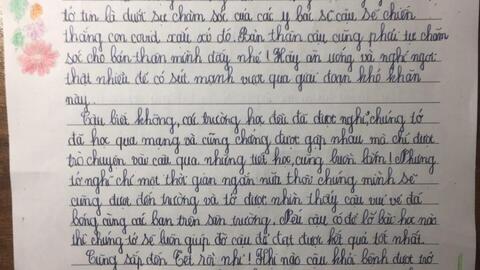 tớ tin là dưới sự chăm sóc của các y bác sĩ cậu sẽ chiến
thắng con covid xấu xí đó. Bản thân cậu cũng phải tự chăm
sóc cho bản thân mình đấy nhé! Hãy ăn uống và nghỉ ngơi
thật nhiều để có sức mạnh vượt qua giai đoạn khó khăn
này.
Cậu biết không, các trường học đều đã được nghỉ, chúng tớ
đã học qua mạng và cũng chẳng được gặp nhau mà chỉ được
trò chuyện vài câu qua những tiết học, cũng buồn lắm! Nhưng
tớ nghĩ chỉ một thời gian ngắn nữa thôi chúng mình sẽ
cùng được đến trường và tớ được nhìn thấy cậu vui vẻ đá
bóng cùng các bạn trên sân trường. Nếu cậu có để lỡ bài học nào
thì chúng tớ sẽ luôn giúp đỡ cậu để đạt được kết quả tốt nhất.
Cũng sắp đến Tết rồi nhỉ! Khi nào cậu khỏi bệnh được trở